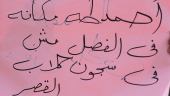 أحمد طه مكانه
فى الفصل مش
فى سجون كلاب
القصر